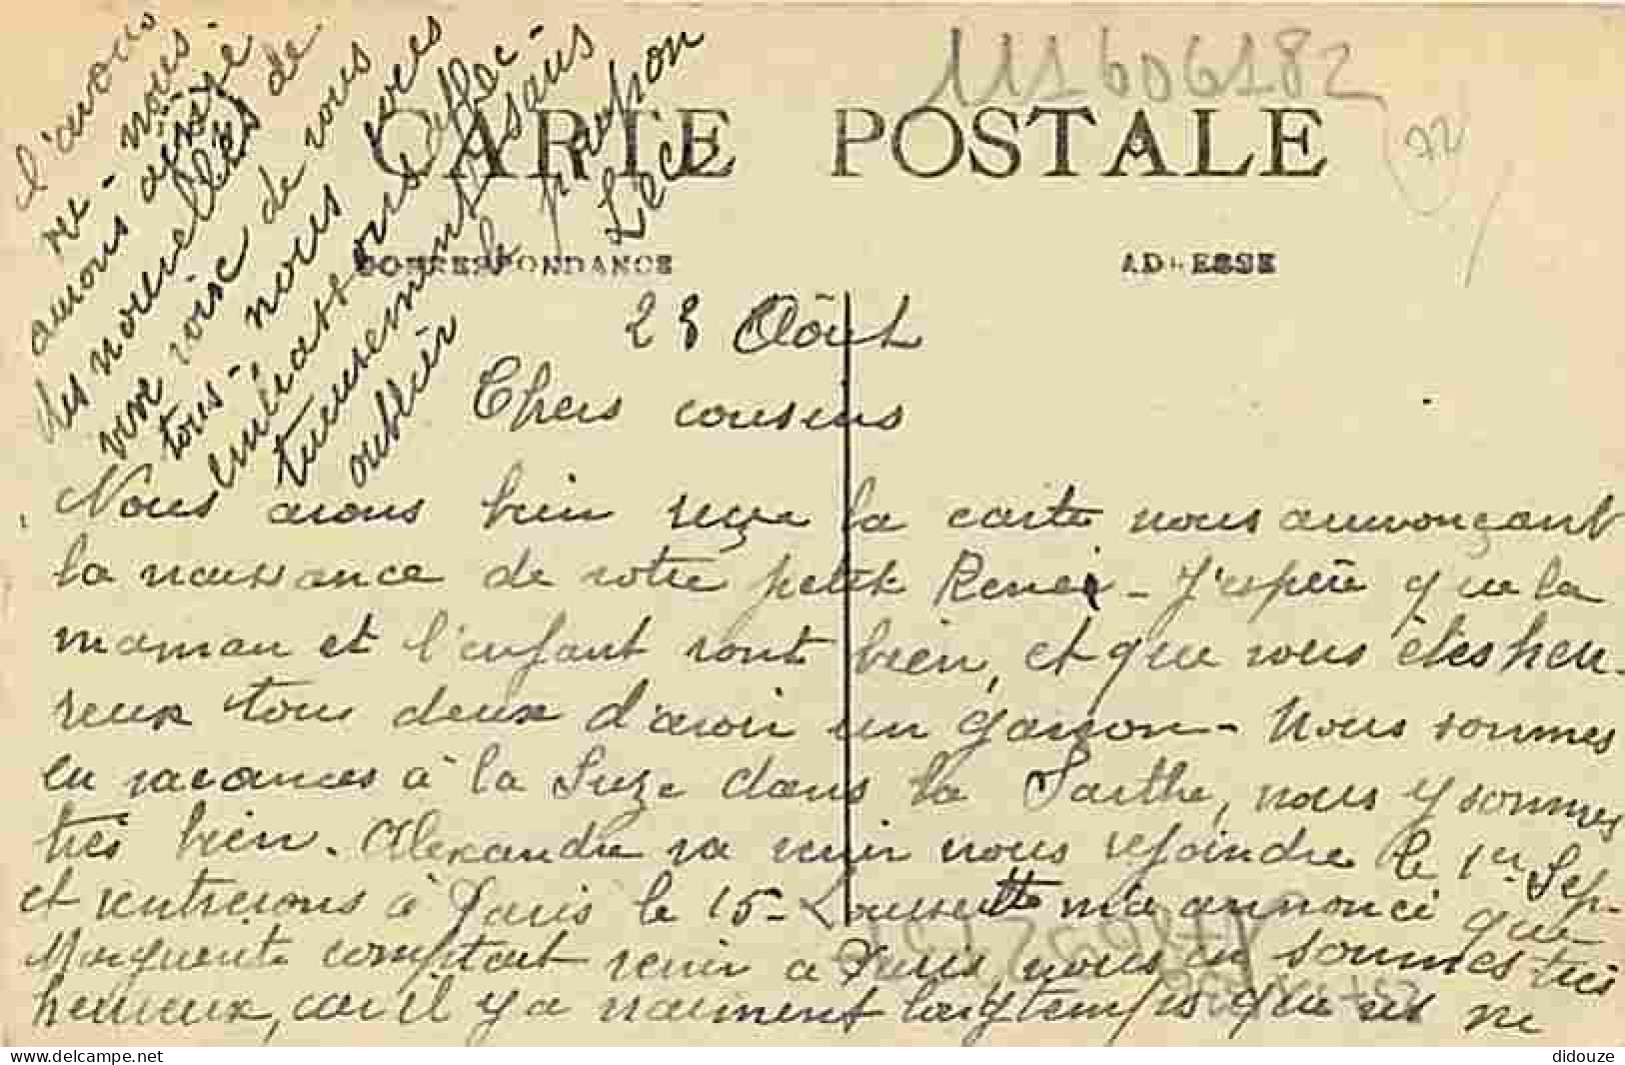 111606182
72
CARTE POSTALE
CORRESPONDANCE
ADRESSE
28 Août
Chers cousins
Nous avons bien reçu la carte nous annonçant
la naissance de votre petit René - J'espère que la
maman et l'enfant vont bien, et que vous êtes heu-
reux tous deux d'avoir un garçon - Nous sommes
en vacances à la Suze dans la Sarthe, nous y sommes
très bien. Alexandre va venir nous rejoindre le 1er Sep-
et rentrerons à Paris le 15 - Lousette m'a annoncé que
Marguerite comptait venir à Paris, nous en sommes très
heureux, car il y a vraiment longtemps que ns ne
l'avons
vu - nous
aurons ainsi
des nouvelles de
vive voix de vous
tous - nous vous
embrassons affec-
tueusement sans
oublier le parson
Léa
didouze
www.delcampe.net